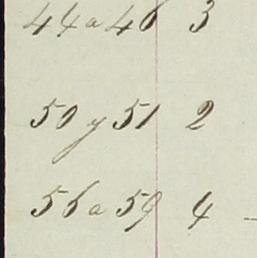 44 a 46 3
50 y 51 2
56 a 59 4 -